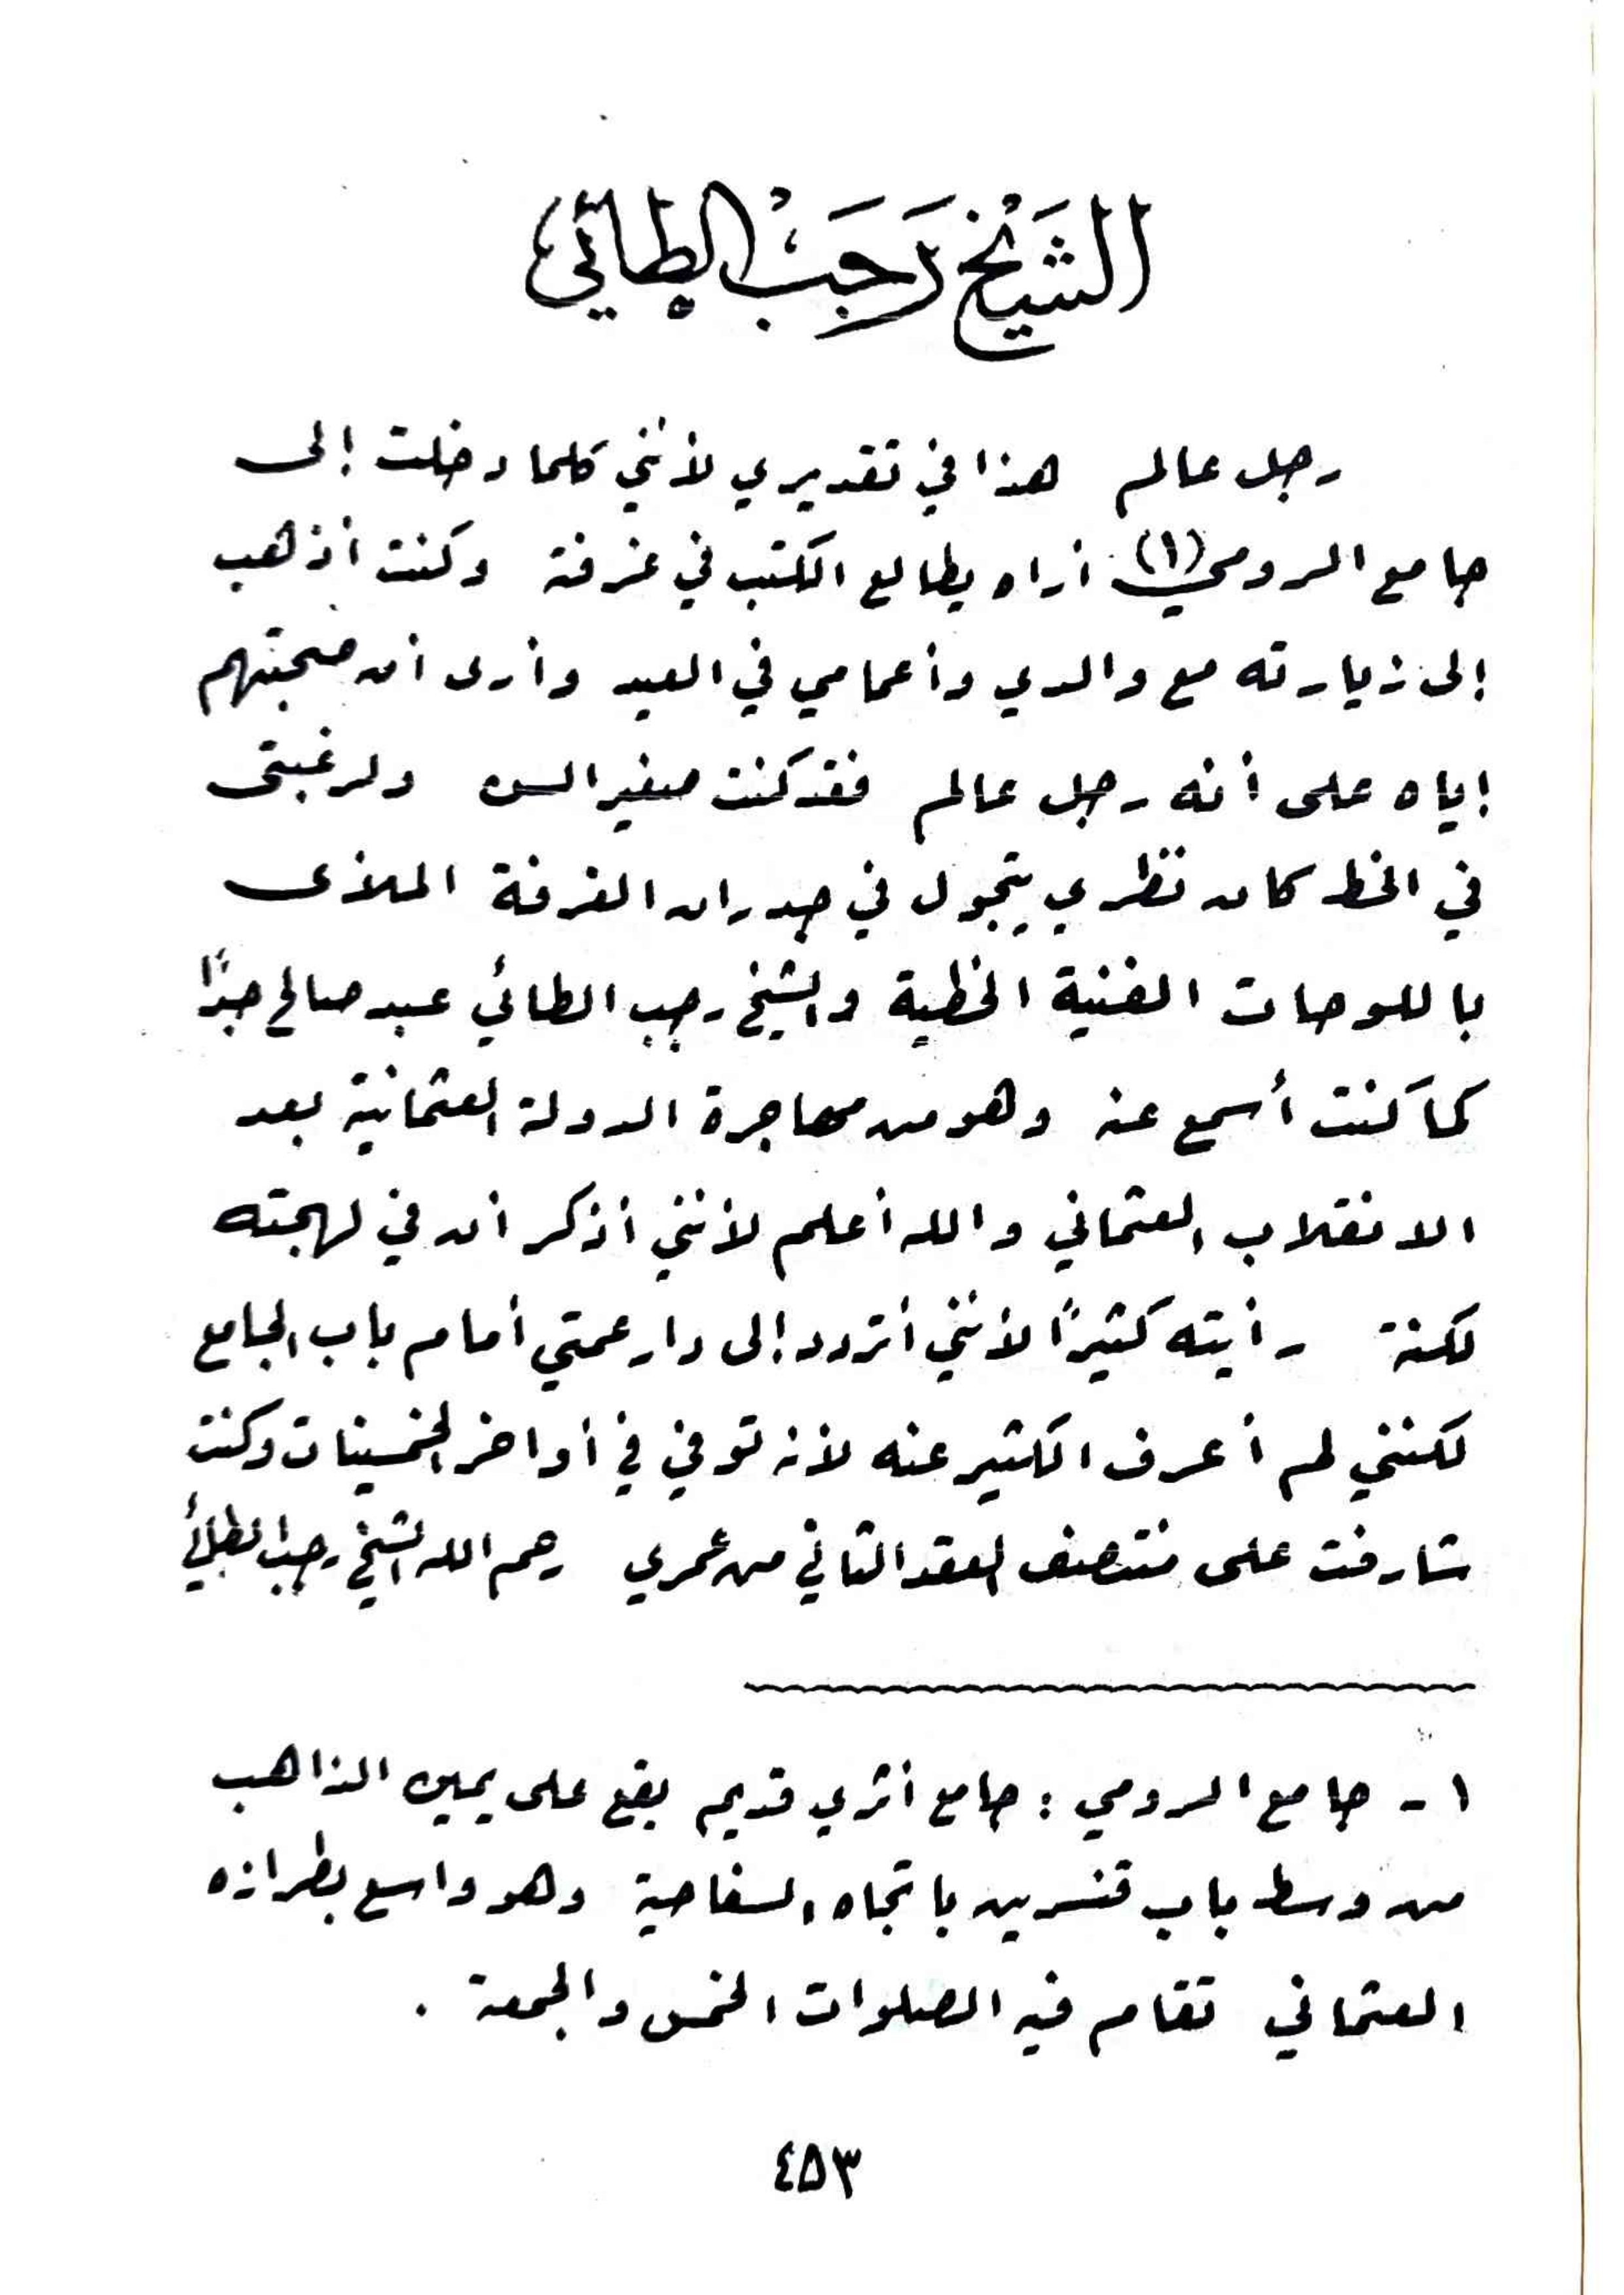 الشَيْخ رَجَبْ الطائي
رجل عالم هذا في تقديري لأنني كلما دخلت إلى
جامع الرومي (١) أراه يطالع الكتب في غرفة وكنت أذهب
إلى زيارته مع والدي وأعمامي في العيد وأرى أن محبتهم
إياه على أنه رجل عالم فقد كنت صغير السن ولرغبتي
في الخط كان نظري يتجول في جدران الغرفة الملأى
باللوحات الفنية الخطية والشيخ رجب الطائي عبد صالح جدًا
كما كنت أسمع عنه وهو من مهاجرة الدولة العثمانية بعد
الانقلاب العثماني والله أعلم لأنني أذكر أن في لهجته
لكنة رأيته كثيرًا لأنني أتردد إلى دار عمتي أمام باب الجامع
لكنني لم أعرف الكثير عنه لأنه توفي في أواخر الخمسينات وكنت
شارفت على منتصف العقد الثاني من عمري رحم الله الشيخ رجب الطائي
١ - جامع الرومي : جامع أثري قديم يقع على يمين الذاهب
من وسط باب قنسرين باتجاه السفاحية وهو واسع بطرازه
العثماني تقام فيه الصلوات الخمس والجمعة .
٤٥٣